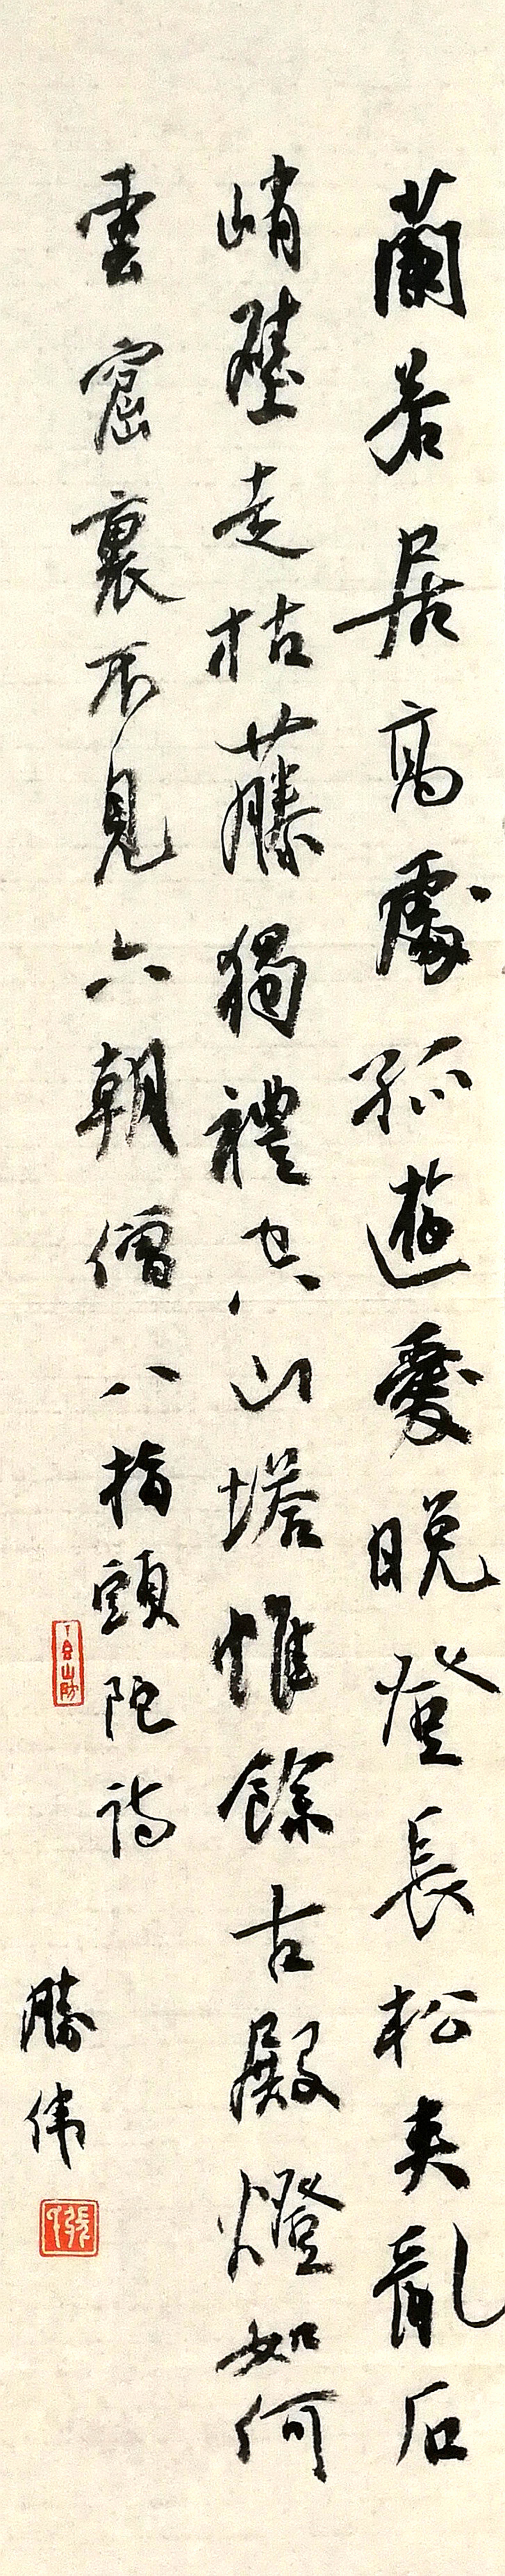 蘭若居高處孤遊愛晚登長松夾亂石
峭壁走枯藤獨禮空山塔惟餘古殿燈如何
雲窟裏不見六朝僧八指頭陀詩
勝伟